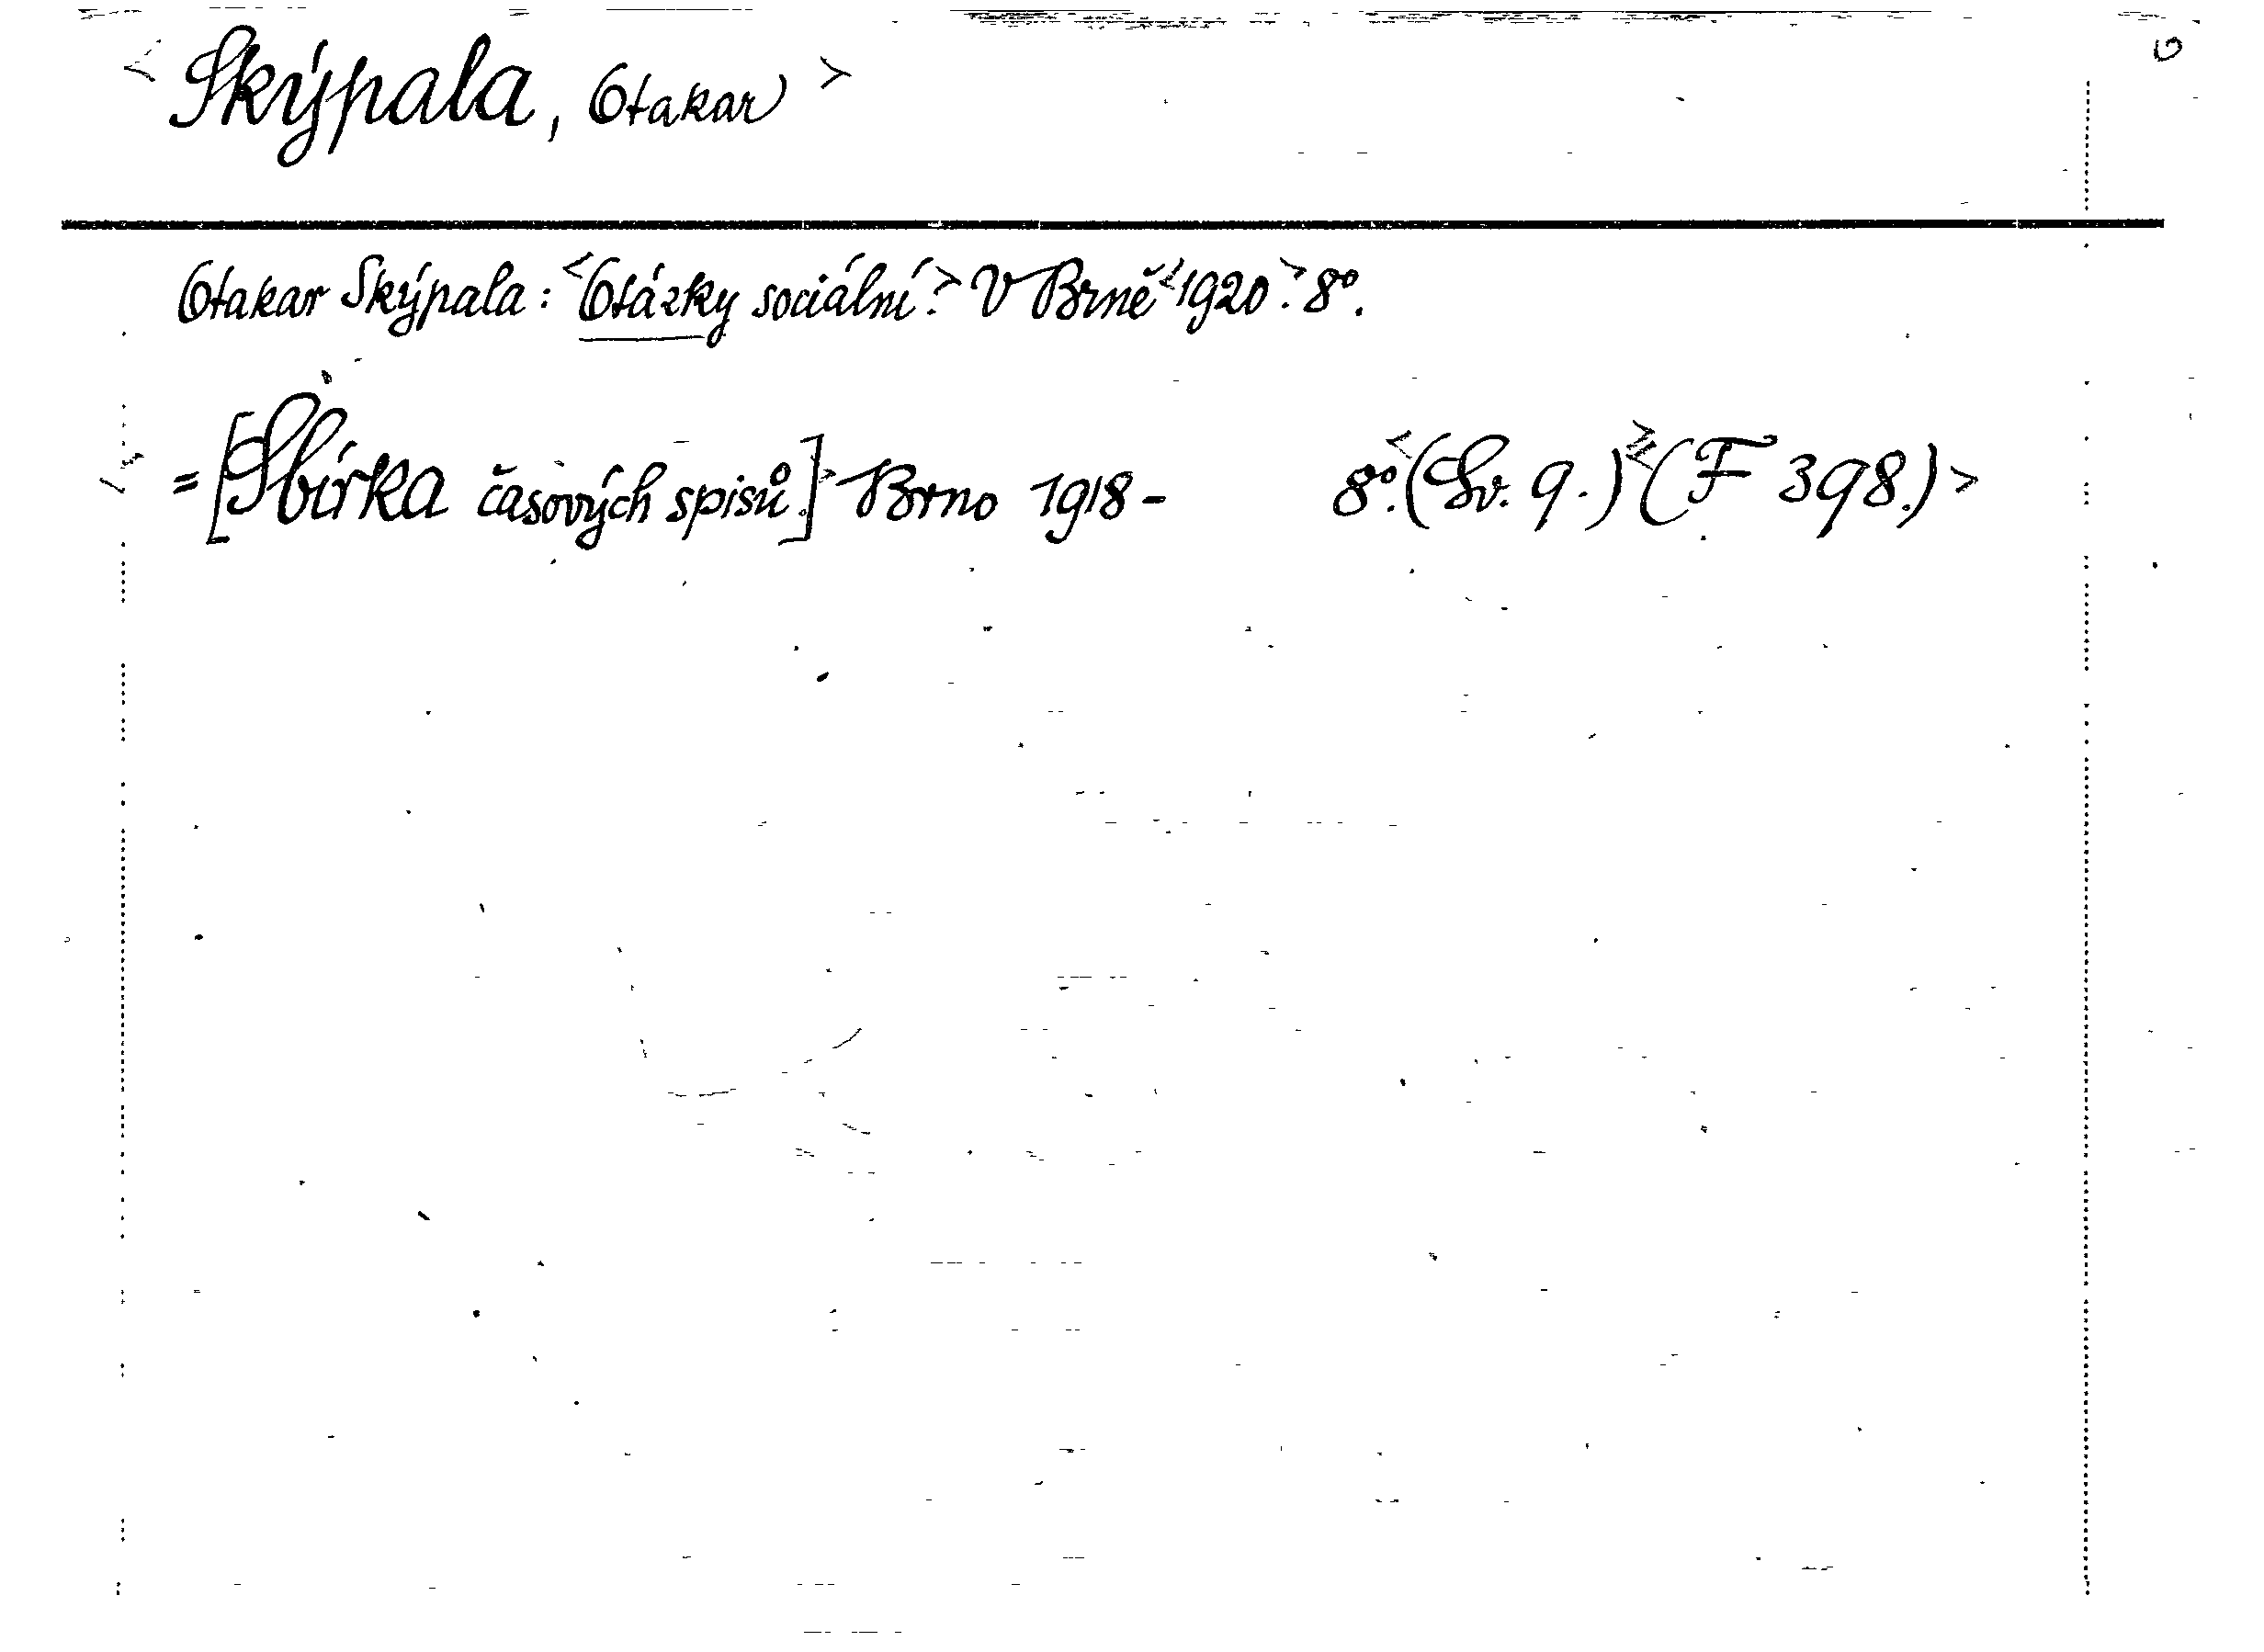 <Skýpala, Otakar>
Otakar Skýpala: <Otázky sociální.> V Brně <1920.> 8°.
= [Sbírka časových spisů.] Brno 1918- 8°. <(Sv. 9.)> <(F 398.)>